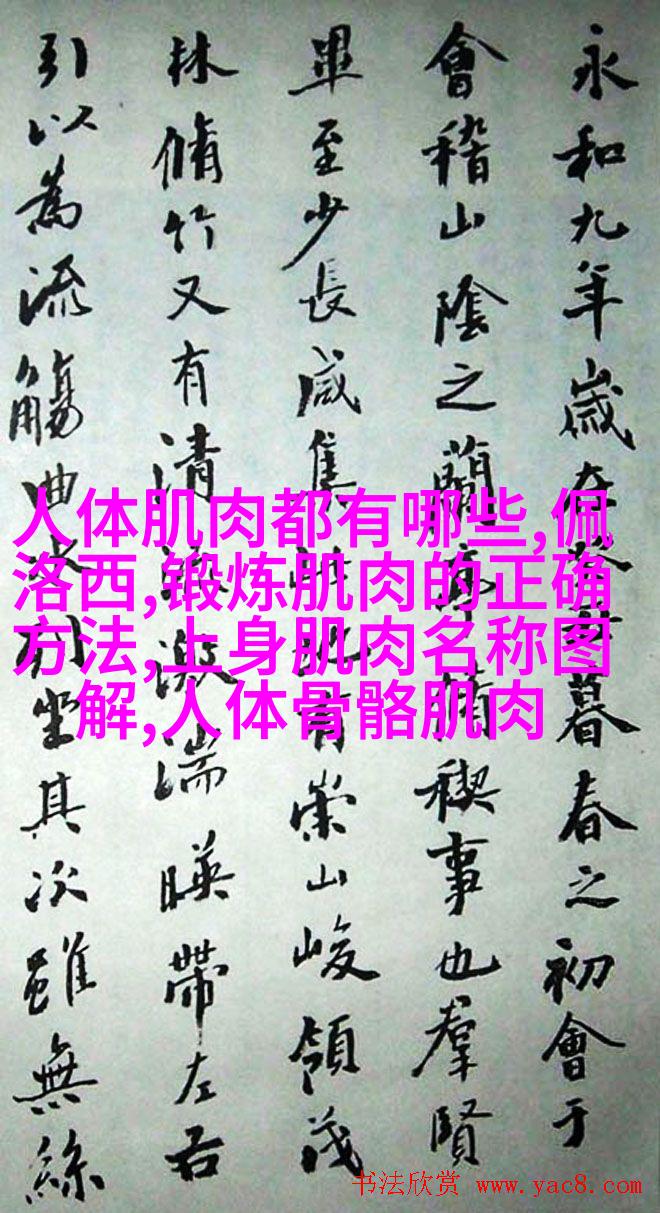 永和九年歲在癸丑暮春之初會于
會稽山陰之蘭亭脩稧事也羣賢
畢至少長咸集此地有崇山峻領茂
林脩竹又有清流激湍暎帶左右
引以為流觴曲水列坐其次雖無絲
人体肌肉都有哪些,佩
洛西,锻炼肌肉的正确
方法,上身肌肉名称图
解,人体骨骼肌肉
书法欣赏 www.yac8.com